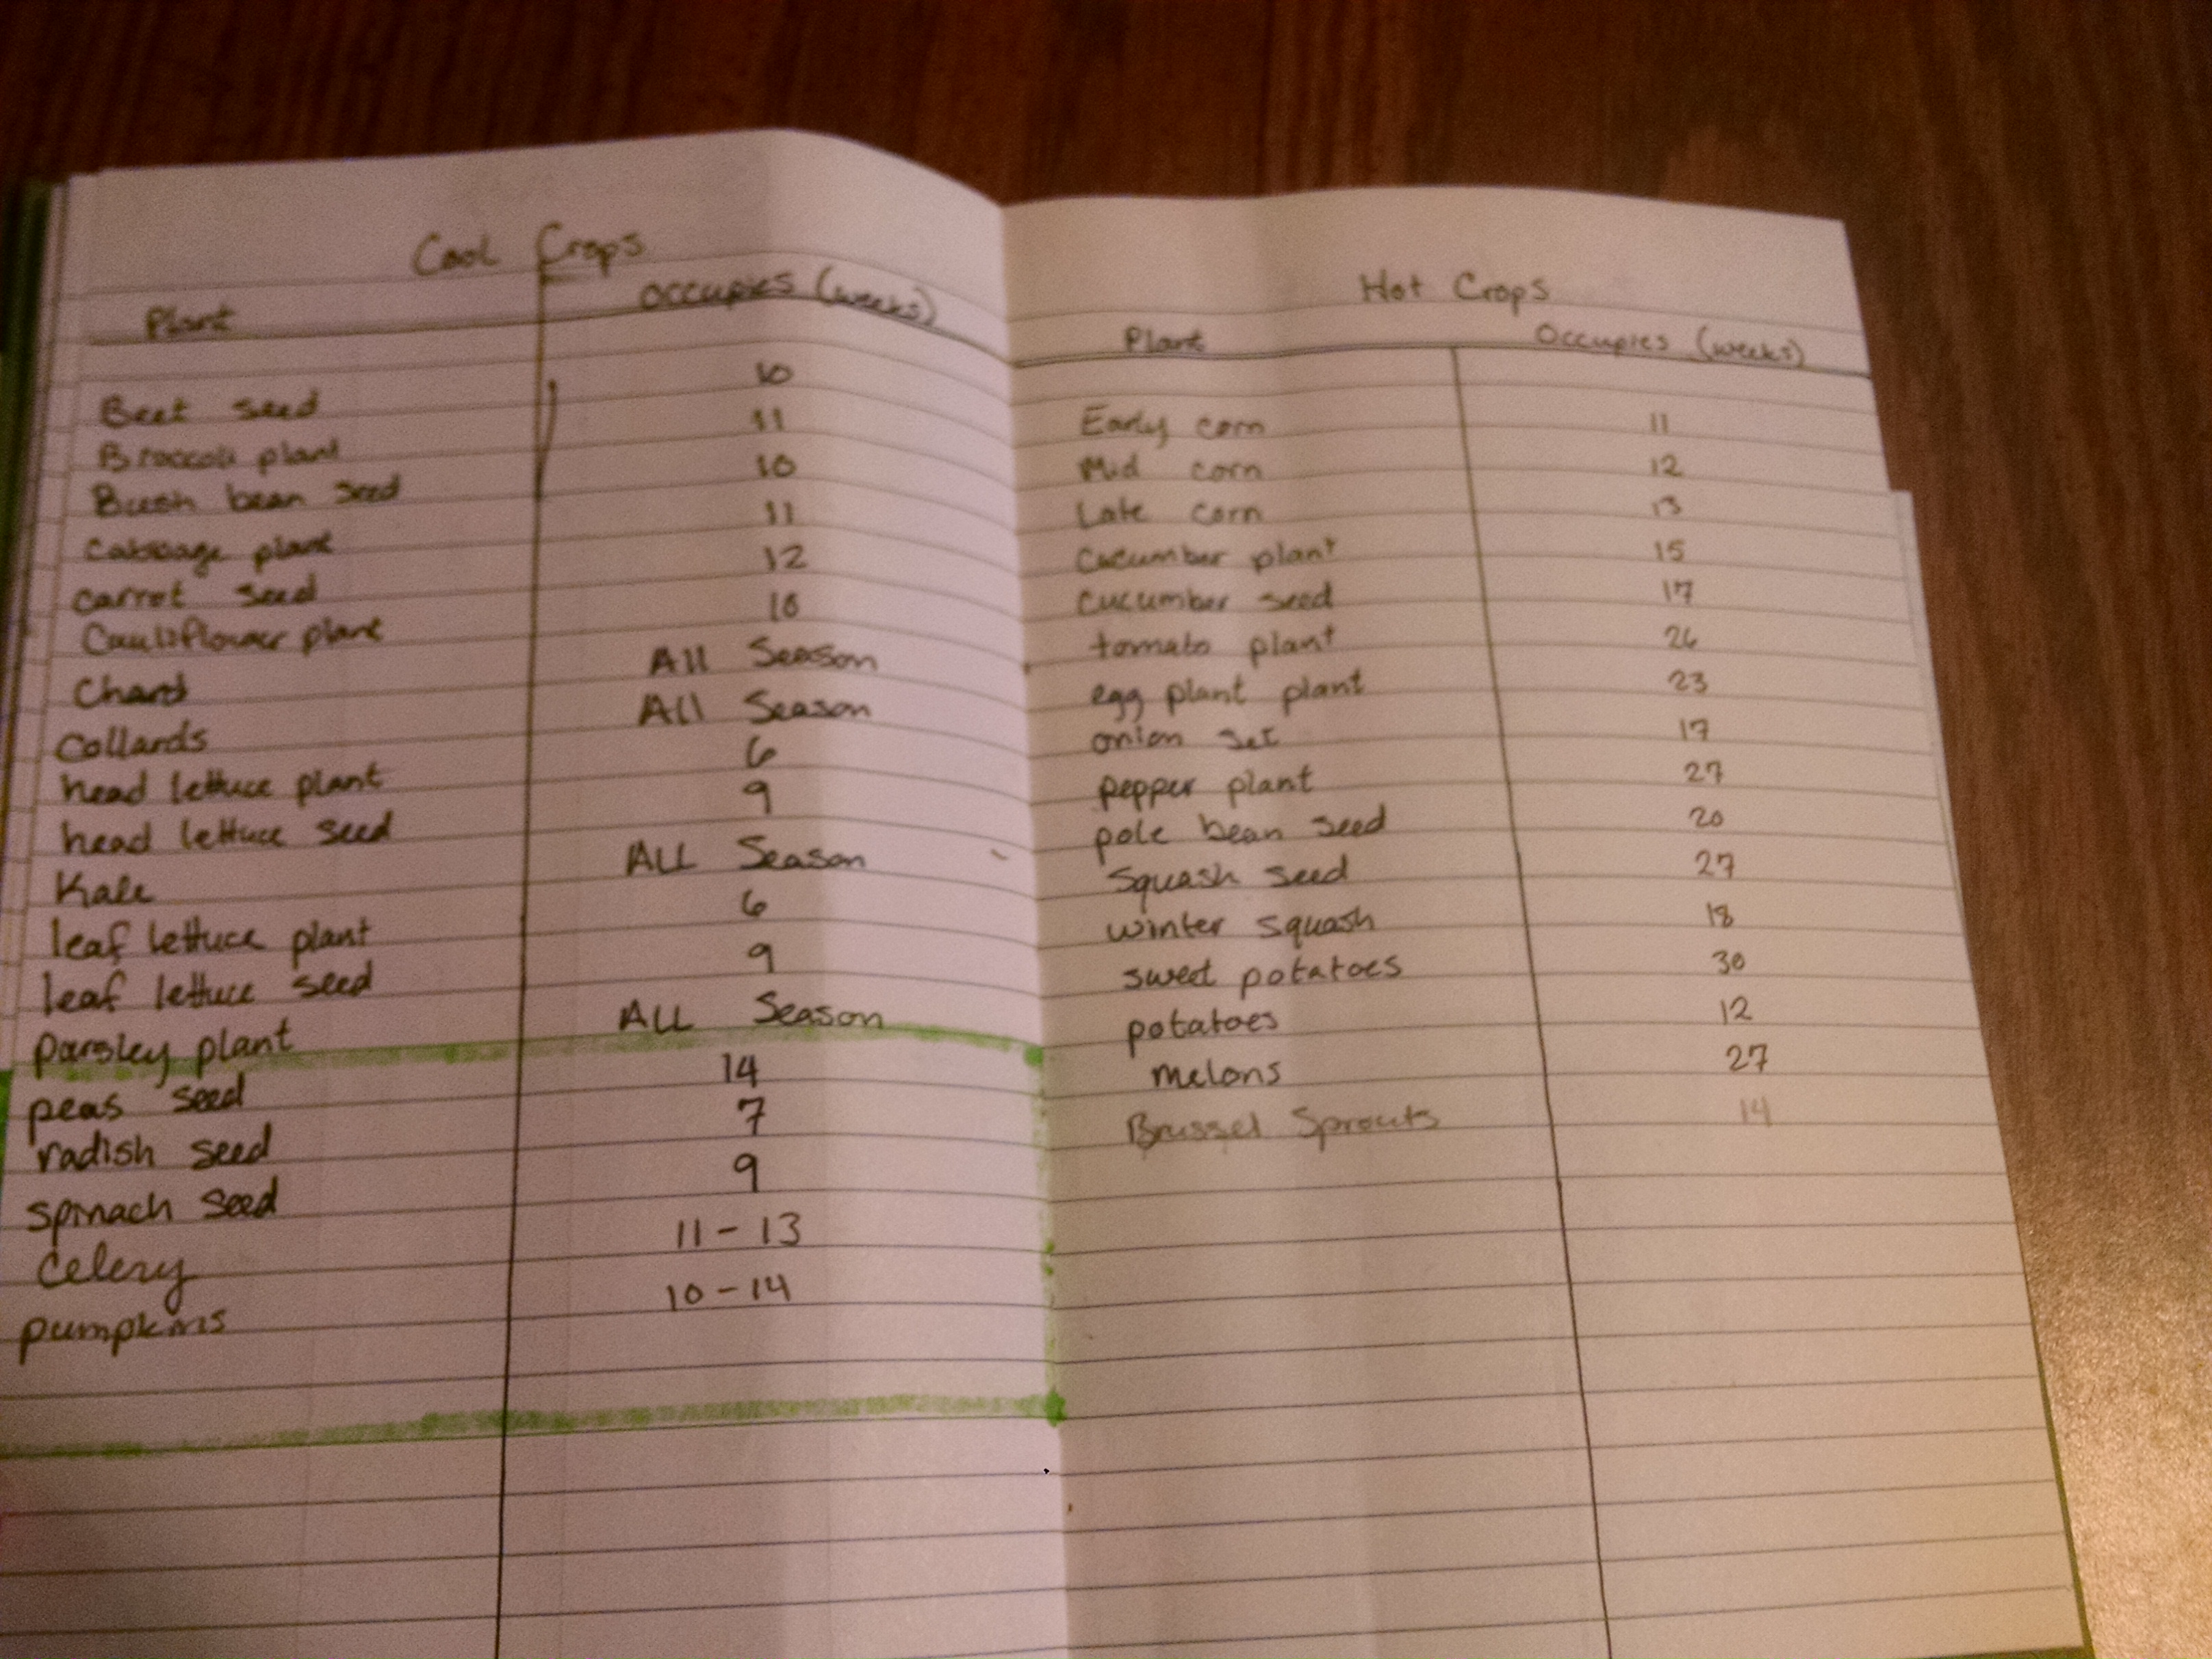 Cool Crops
Plant Occupies (weeks)
Beet seed 10
Broccoli plant 11
Bush bean seed 10
Cabbage plant 11
carrot seed 12
Cauliflower plant 10
Chard All Season
Collards All Season
head lettuce plant 6
head lettuce seed 9
Kale ALL Season
leaf lettuce plant 6
leaf lettuce seed 9
parsley plant ALL Season
peas seed 14
radish seed 7
spinach seed 9
Celery 11-13
pumpkins 10-14
Hot Crops
Plant Occupies (weeks)
Early corn 11
Mid corn 12
Late corn 13
Cucumber plant 15
cucumber seed 17
tomato plant 26
egg plant plant 23
onion set 17
pepper plant 27
pole bean seed 20
Squash seed 27
winter squash 18
sweet potatoes 30
potatoes 12
melons 27
Brussel Sprouts 14